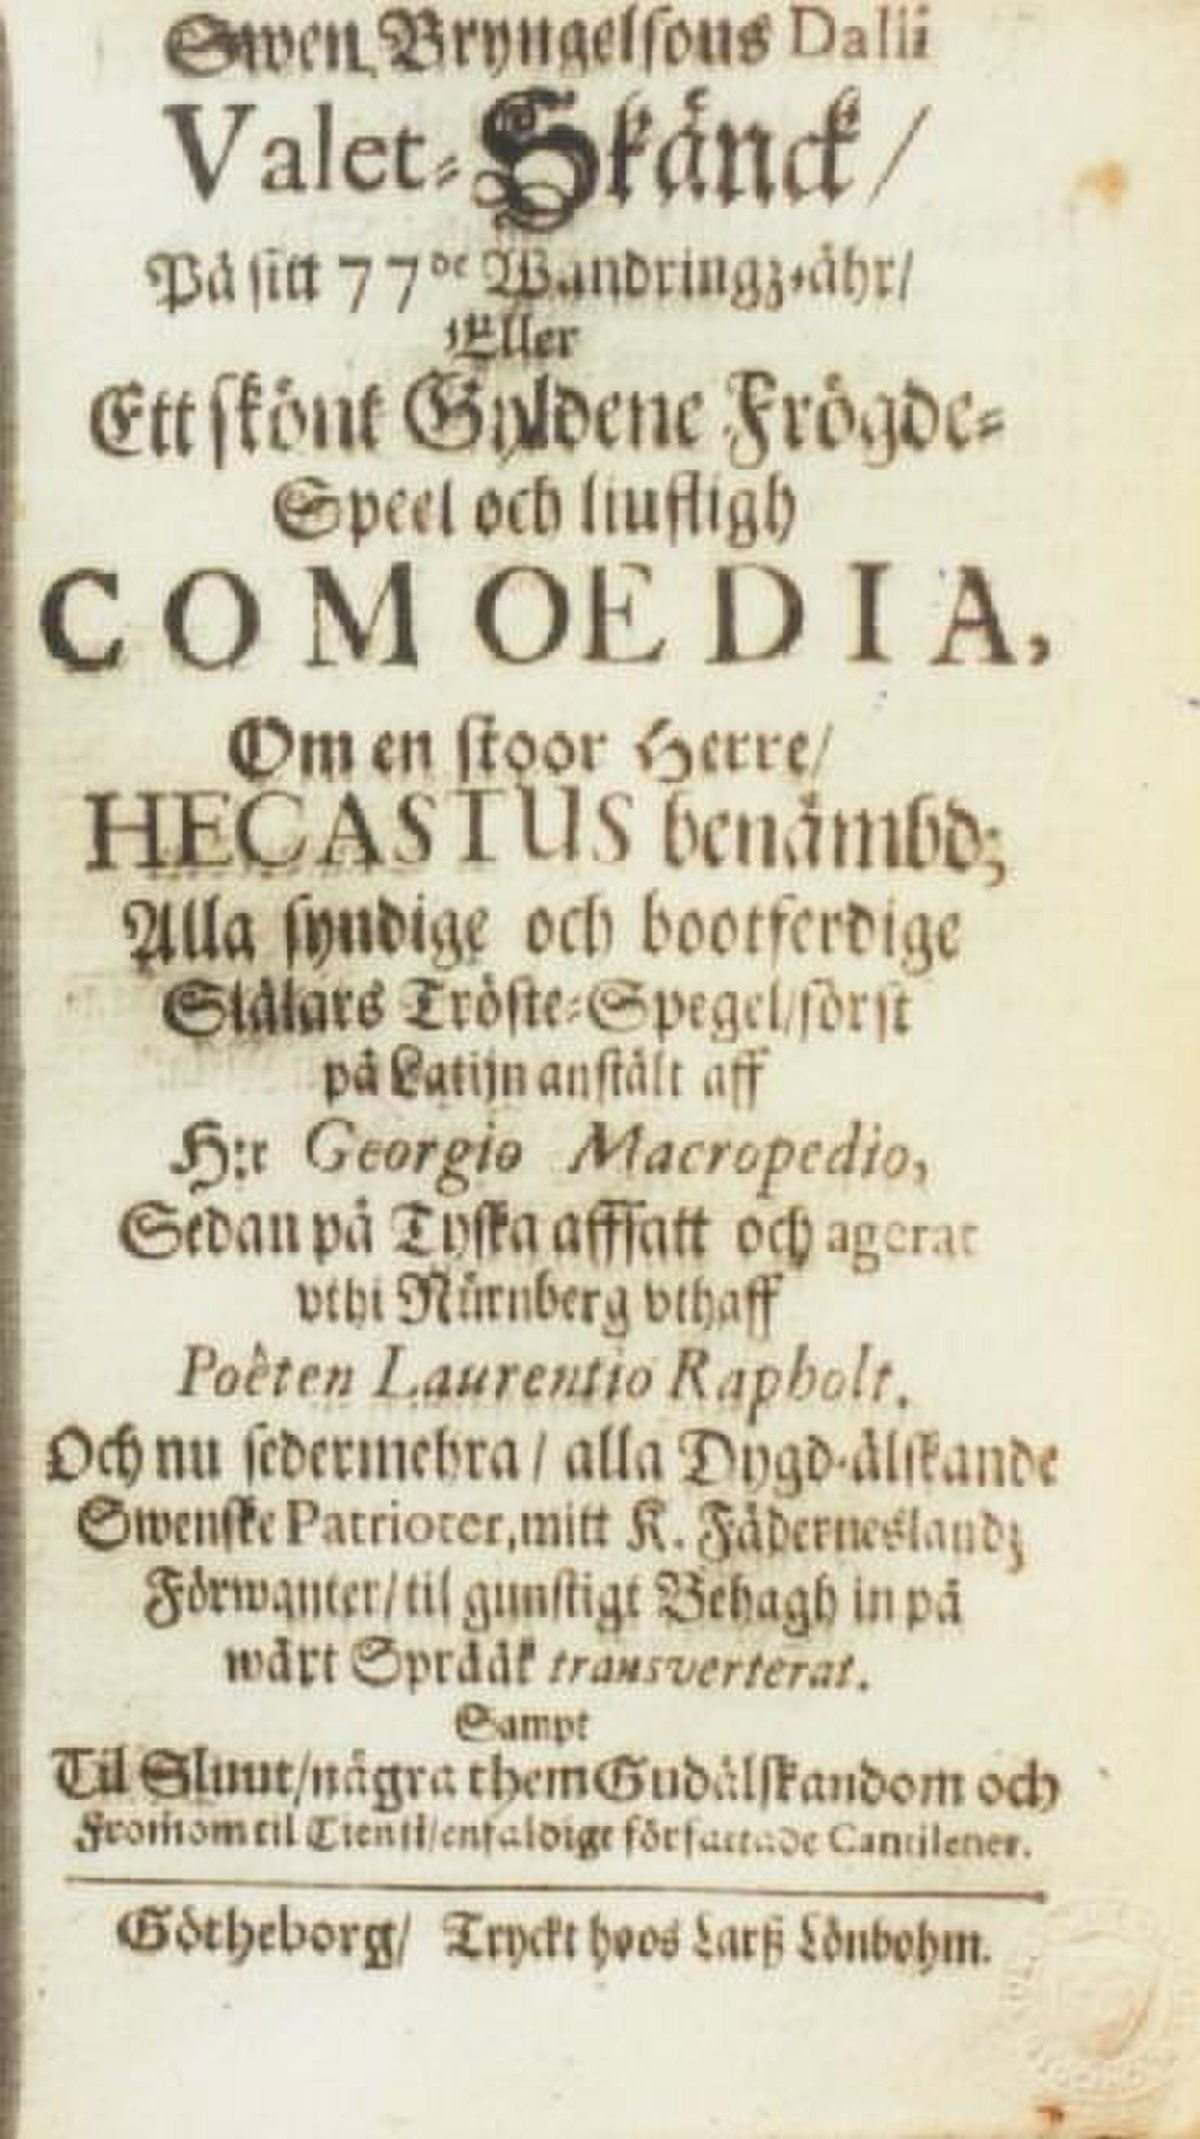 Swen Bryngelsons Dalii
Valet-Skänck/
På sitt 77de Wandringz-åhr/
Eller
Ett skönt Gyldene Frögde-
Speel och liufligh
COMOEDIA,
Om en stoor Herre/
HECASTUS benämbd;
Alla syndige och bootferdige
Siälars Tröste-Spegel/först
på Latijn anstält aff
H:r Georgio Macropedio,
Sedan på Tyska affsatt och agerat
vthi Nürnberg vthaff
Poëten Laurentio Rapholt.
Och nu sedermehra/ alla Dygd-älskande
Swenske Patrioter, mitt K. Fäderneslandz
Förwanter/til gunstigt Behagh in på
wårt Språåk transverterat.
Sampt
Til Sluut/några them Gudälskandom och
Fromom til Tienst/enfaldigt författade Cantilener.
Götheborg/ Tryckt hoos Larß Lönbohm.